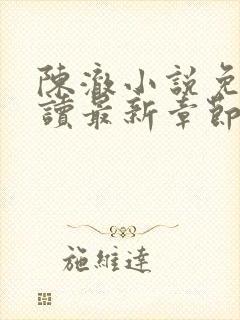 陳澈小説免
讀最新章節
施維達